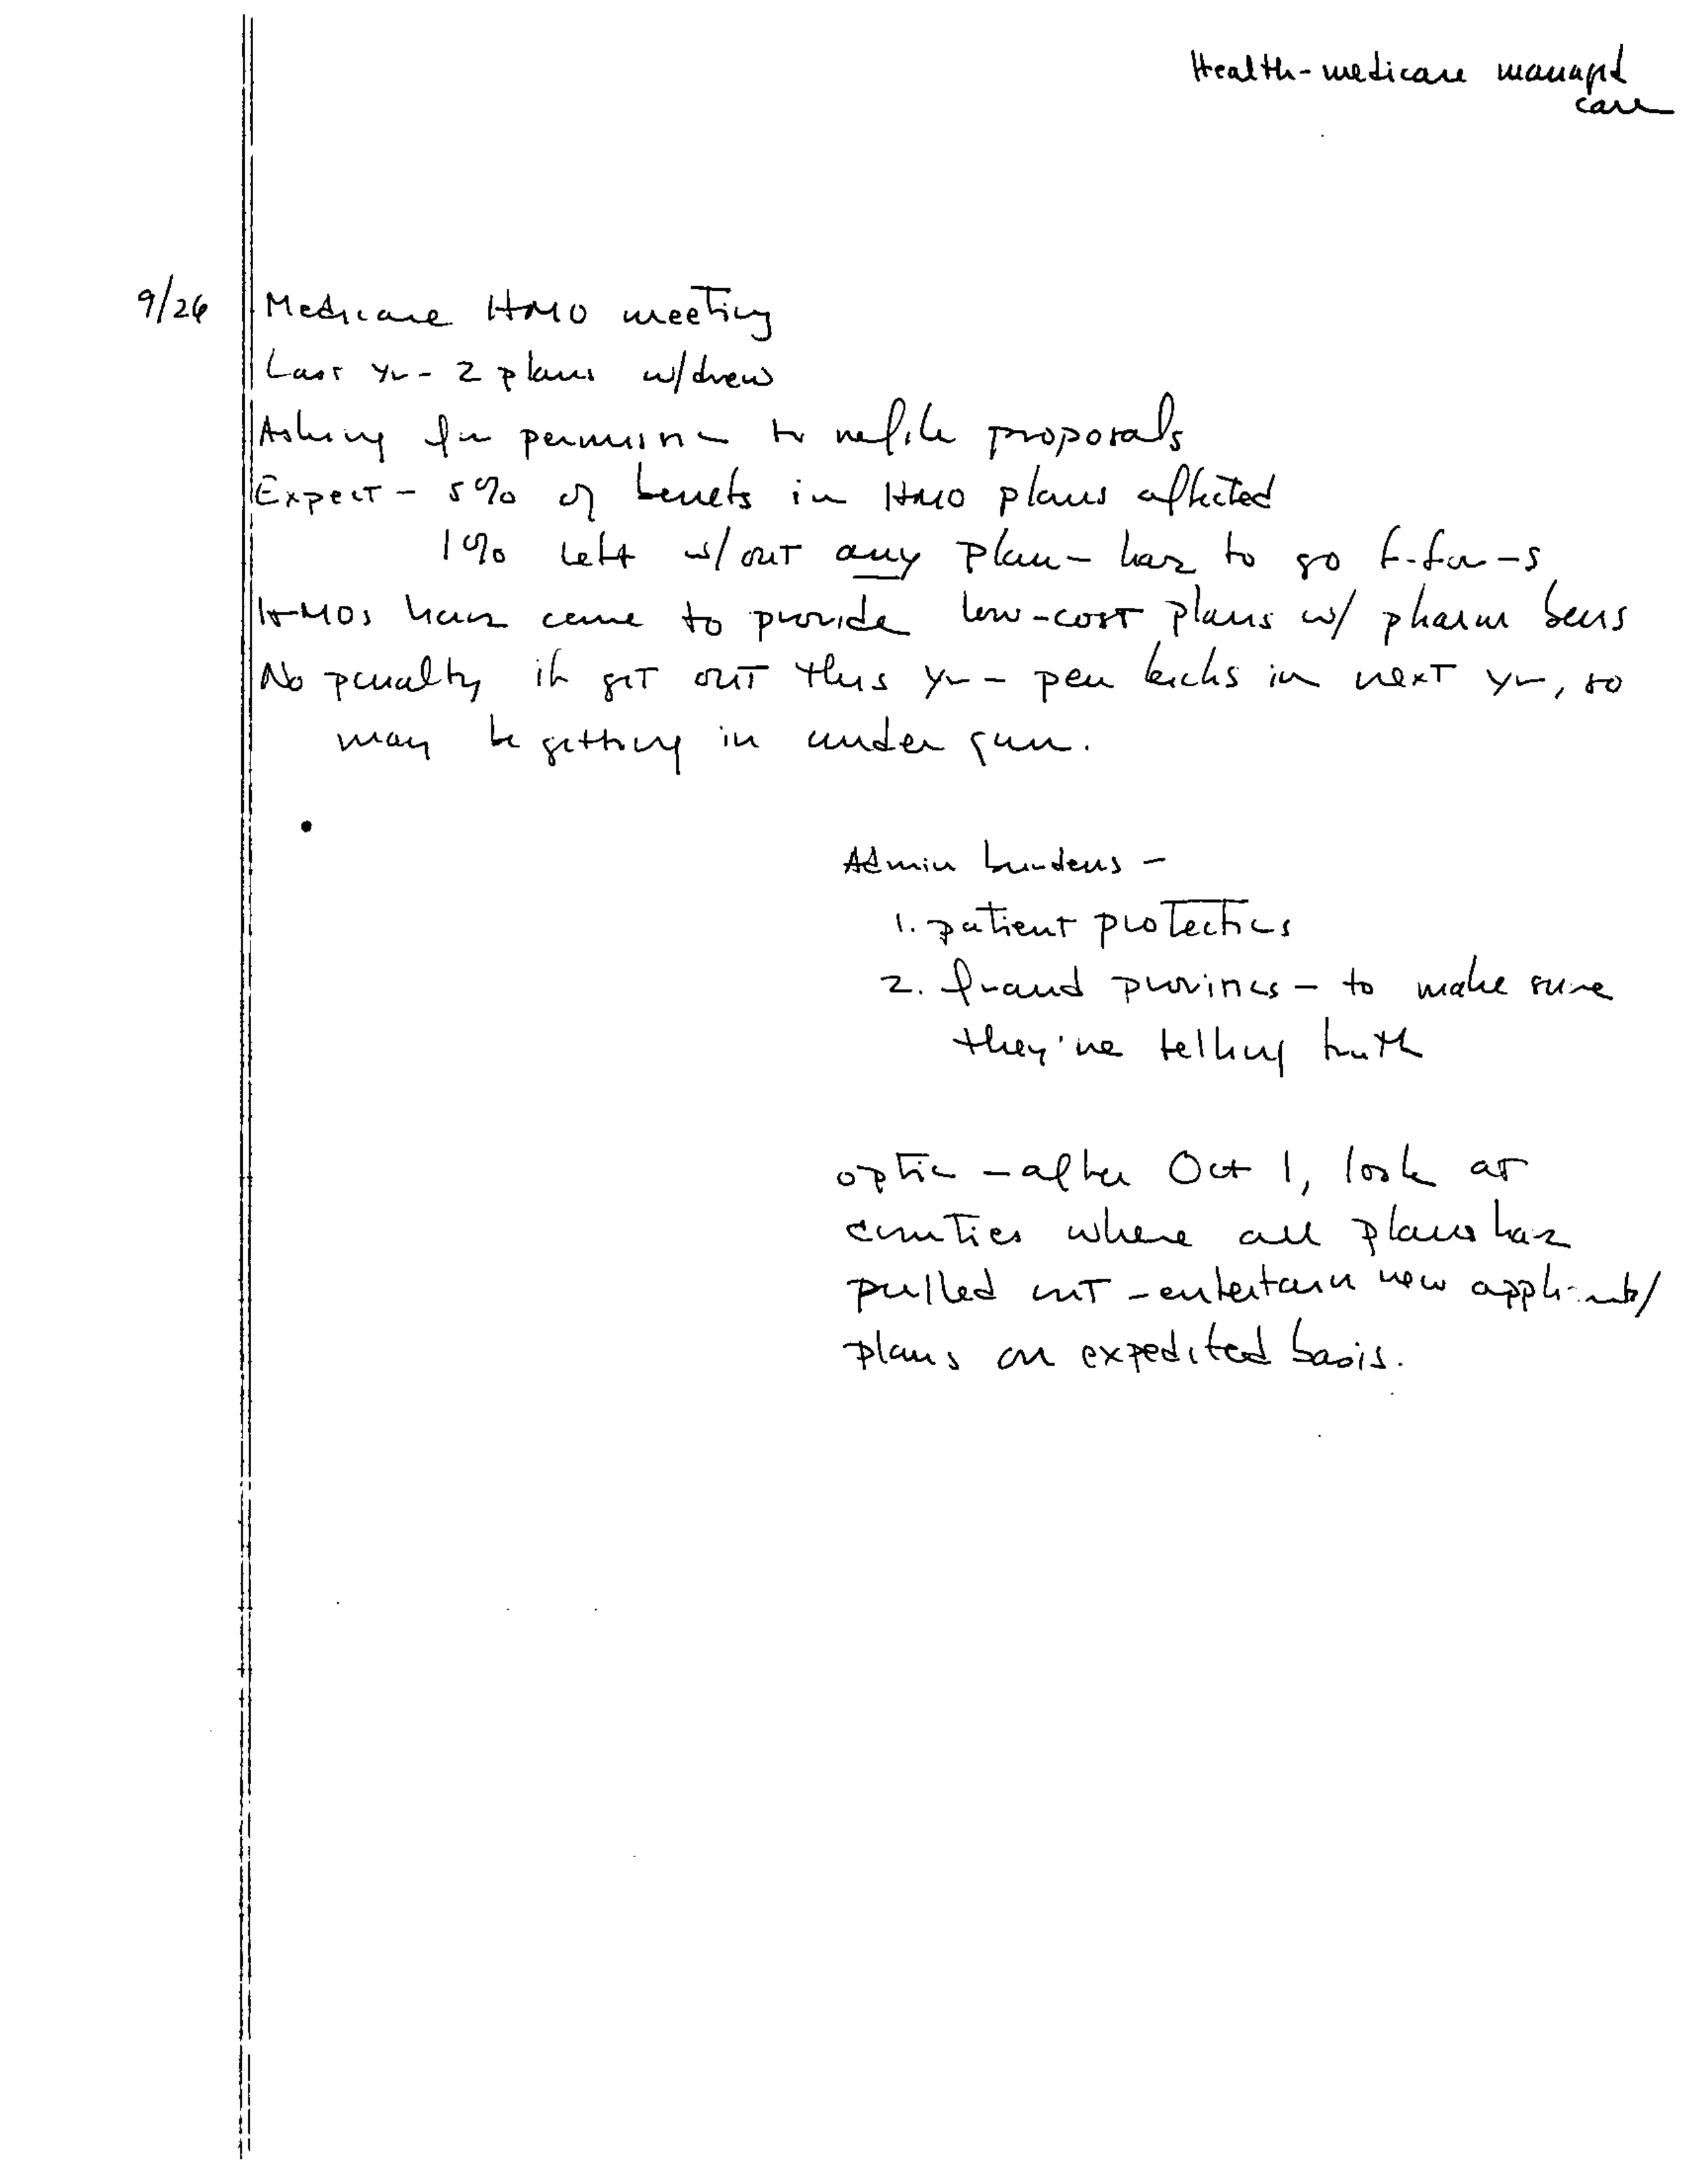 Health-medicare managed
care
9/26 Medicare HMO meeting
Last yr - 2 plans w/drew
Asking for permission to refile proposals
Expect - 5% of benefs in HMO plans affected
1% left w/out any plan - have to go f-for-s
HMOs have come to provide low-cost plans w/ pharm bens
No penalty if get out this yr - pen kicks in next yr, so
may be getting in under gun.
Admin burdens -
1. patient protections
2. fraud provisions - to make sure
they're telling truth
option - after Oct 1, look at
counties where all plans have
pulled out - entertain new applicants/
plans on expedited basis.